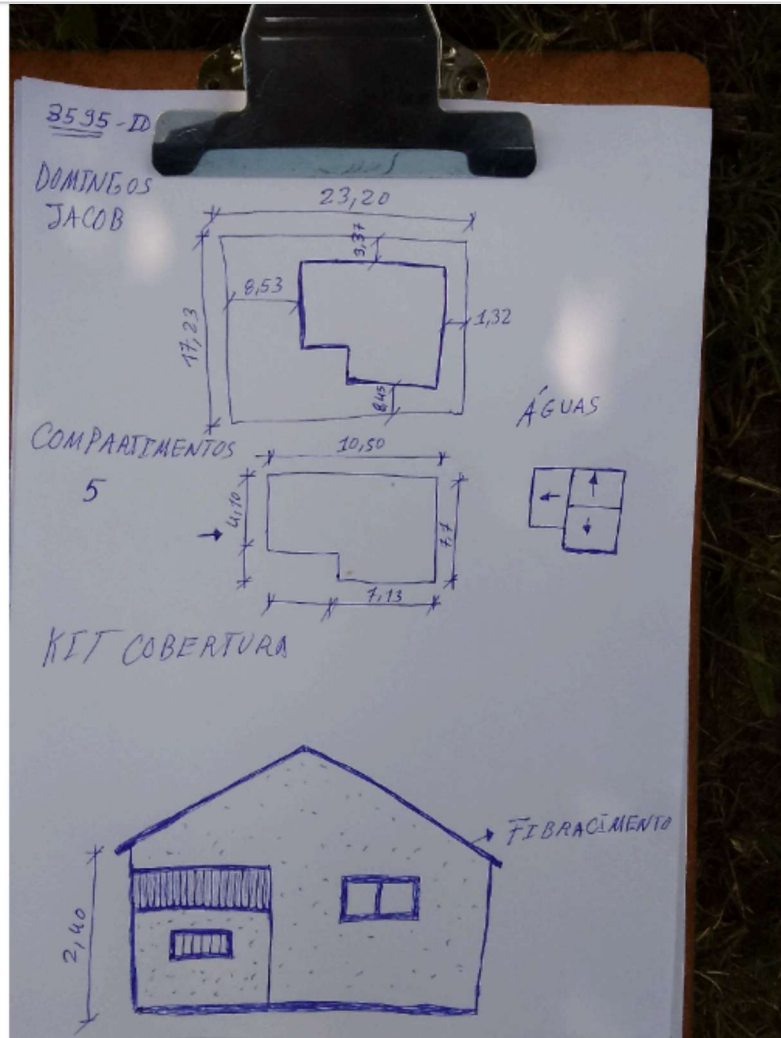 8595-ID
DOMINGOS
JACOB
23,20
3,37
8,53
17,23
1,32
8,45
ÁGUAS
COMPARTIMENTOS
5
10,50
4,10
7,7
7,13
KIT COBERTURA
FIBRACIMENTO
2,40